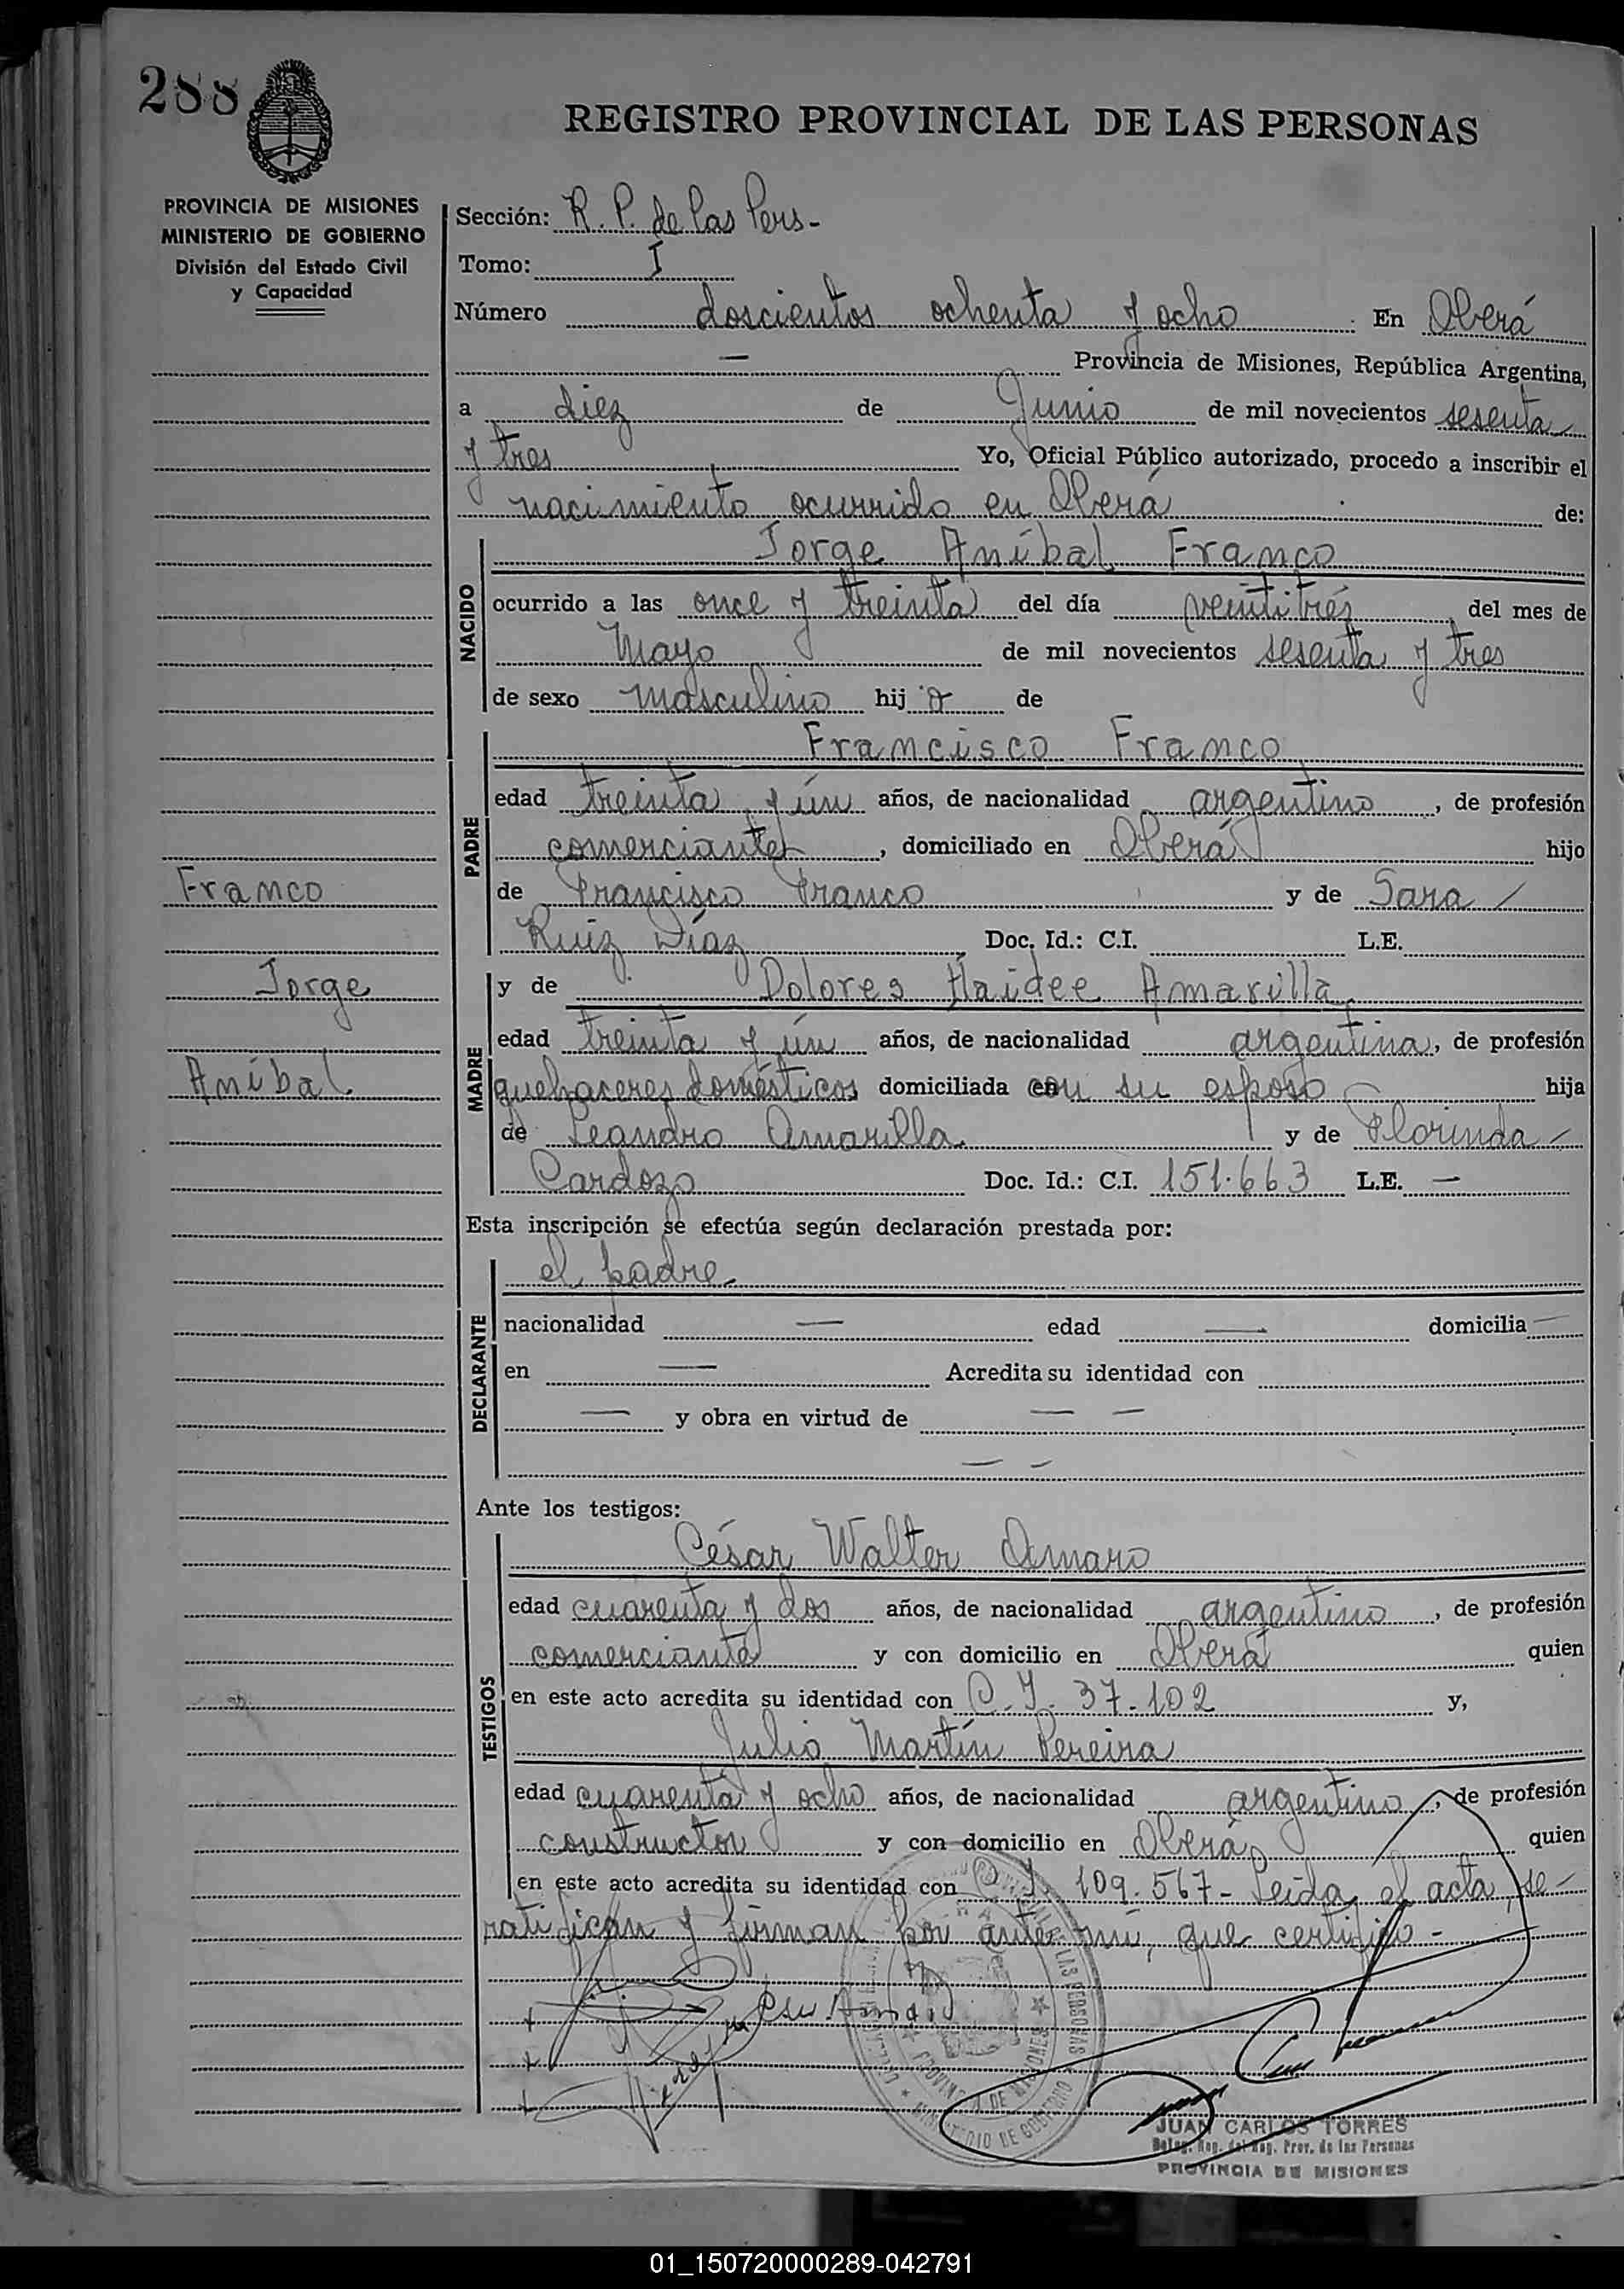 288
REGISTRO PROVINCIAL DE LAS PERSONAS
PROVINCIA DE MISIONES
MINISTERIO DE GOBIERNO
División del Estado Civil
y Capacidad
Sección: R. P. de las Pers-
Tomo: I
Número doscientos ochenta y ocho En Oberá
— Provincia de Misiones, República Argentina,
a diez de Junio de mil novecientos sesenta
y tres Yo, Oficial Público autorizado, procedo a inscribir el
nacimiento ocurrido en Oberá de:
NACIDO
Jorge Aníbal Franco
ocurrido a las once y treinta del día veintitrés del mes de
Mayo de mil novecientos sesenta y tres
de sexo masculino hijo de
PADRE
Francisco Franco
edad treinta y ún años, de nacionalidad argentino, de profesión
comerciante, domiciliado en Oberá hijo
Franco
de Francisco Franco y de Sara
Ruiz Díaz Doc. Id.: C.I. L.E.
Jorge
MADRE
y de Dolores Haidee Amarilla
edad treinta y ún años, de nacionalidad argentina, de profesión
Aníbal
quehaceres domésticos domiciliada con su esposo hija
de Leandro Amarilla y de Florinda -
Cardozo Doc. Id.: C.I. 151.663 L.E. —
Esta inscripción se efectúa según declaración prestada por:
DECLARANTE
el padre.
nacionalidad — edad — domicilia —
en — Acredita su identidad con
— y obra en virtud de — —
— —
Ante los testigos:
TESTIGOS
César Walter Amaro
edad cuarenta y dos años, de nacionalidad argentino, de profesión
comerciante y con domicilio en Oberá quien
en este acto acredita su identidad con C.I. 37.102 y,
Julio Martín Pereira
edad cuarenta y ocho años, de nacionalidad argentino, de profesión
constructor y con domicilio en Oberá quien
en este acto acredita su identidad con C.I. 109.567- Leída el acta, se-
ratifican y firman por ante mí, que certifico-
JUAN CARLOS TORRES
Deleg. Reg. del Reg. Prov. de las Personas
PROVINCIA DE MISIONES
01_150720000289-042791